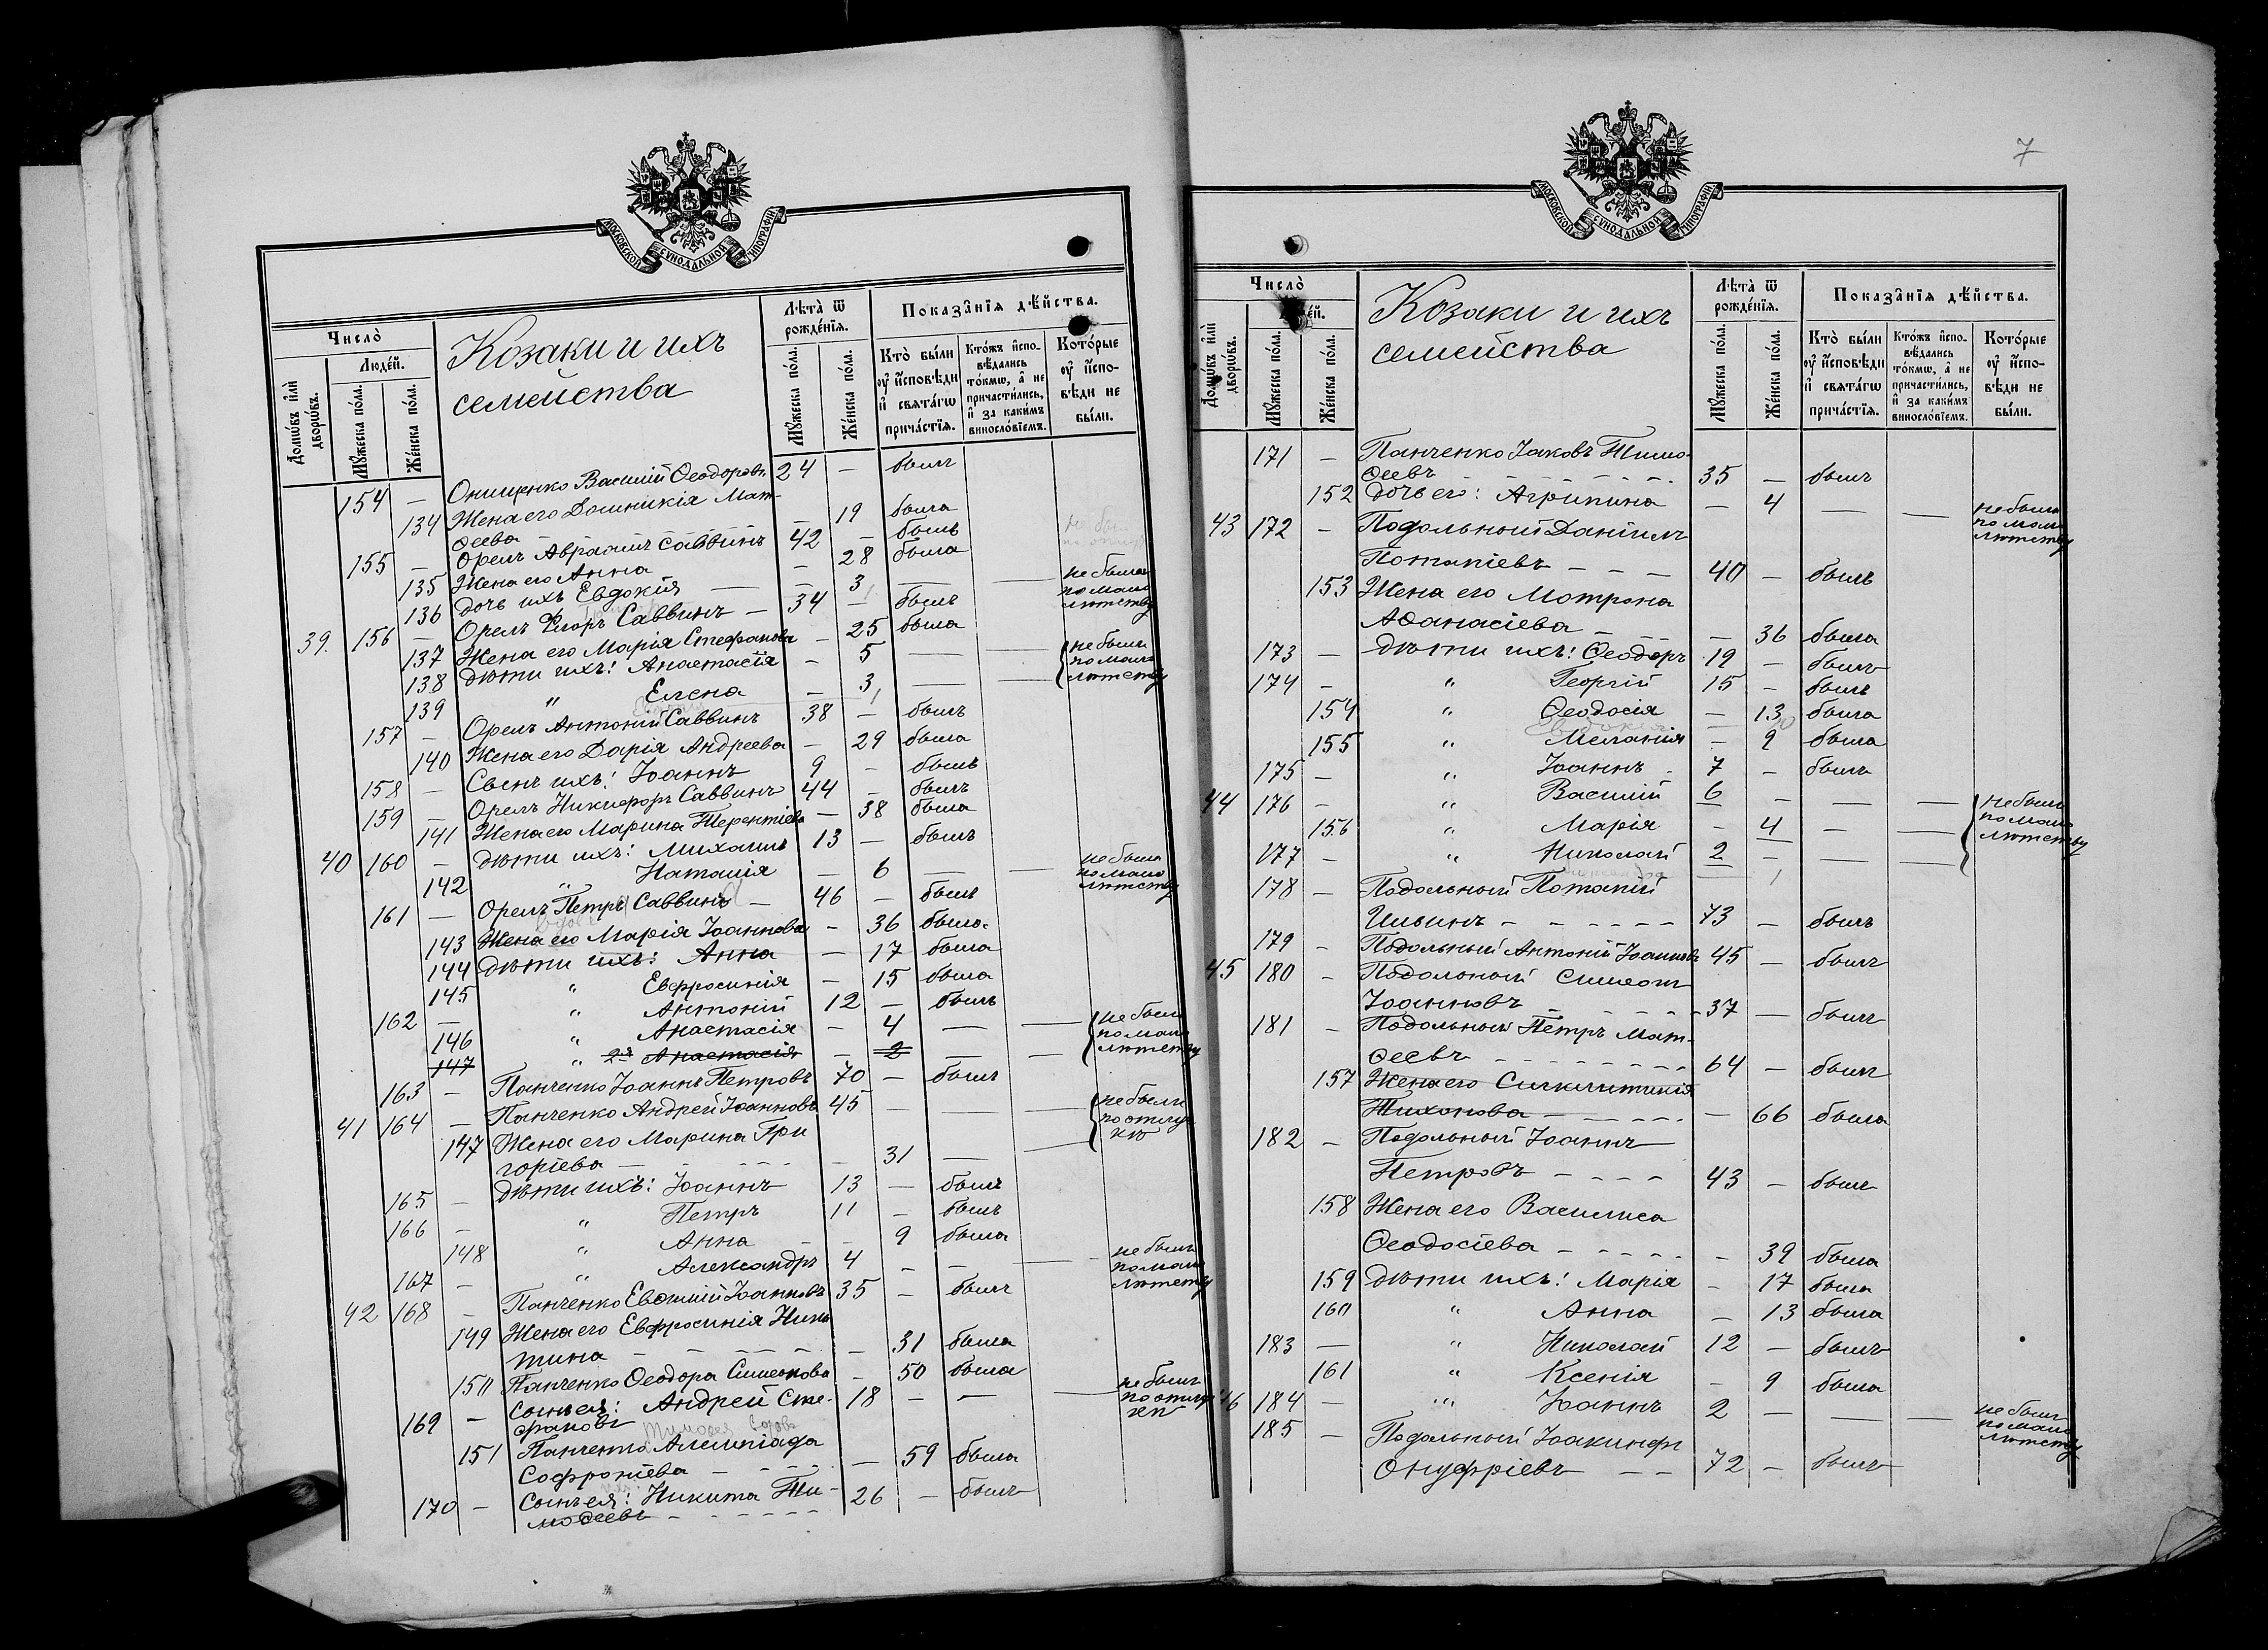 МОСКОВСКОЙ СѴНОДАЛЬНОЙ ТИПОГРАФІИ
Число̀
Люде́й.
Домѡ́въ и҆лѝ дворѡ́въ.
Мꙋ́жеска по́ла.
Же́нска по́ла.
Козаки и ихъ
семейства
Лѣта̀ ѿ рожде́нїѧ.
Мꙋ́жеска по́ла.
Же́нска по́ла.
Показа̑нїѧ дѣ́йства.
Кто̀ бы́ли ᲂу҆ и҆сповѣди и҆ свѧта́гѡ прича́стїѧ.
Кто́жъ и҆спо-вѣ́дались то́кмѡ, а҆ не причасти́лись, и҆ за каки́мъ виносло́вїемъ.
Кото́рые ᲂу҆ и҆спо-вѣди не бы́ли.
154 — Онищенко Василій Ѳеодоровъ 24 — былъ
134 Жена его Домникія Мат-
ѳеева — 19 была
155 — Орелъ Авраамъ Саввинъ 42 — былъ
135 Жена его Анна — 28 была
136 дочь ихъ Евдокія — 3 — — не была по мало лютству
39. 156 — Орелъ Егоръ Саввинъ — 34 — былъ
137 Жена его Марія Стефанова — 25 была
138 дѣти ихъ: Анастасія — 5 — не былъ по мало лютству
139 " Елена — 3 — —
157 — Орелъ Антоній Саввинъ 38 — былъ
140 Жена его Дарія Андреева — 29 была
158 — Сынъ ихъ: Іоаннъ 9 — былъ
159 — Орелъ Никифоръ Саввинъ 44 — былъ
141 Жена его Марина Терентіева — 38 была
40 160 — дѣти ихъ: Михаилъ 13 — былъ
142 " Наталія — 6 — — не была по мало лютству
161 — Орелъ Петръ Саввинъ — 46 — былъ
143 Жена его Марія Іоаннова — 36 была
144 дѣти ихъ: Анна — 17 была
145 " Евфросинія — 15 была
162 — " Антоній 12 — былъ
146 " Анастасія — 4 — — не были по мало лютству
147 " 2я Анастасія — 2 — —
163 — Панченко Іоаннъ Петровъ 70 — былъ
41 164 — Панченко Андрей Іоанновъ 45 — — не были по отлучкѣ
147 Жена его Марина Гри
горіева — — 31 — —
165 — дѣти ихъ: Іоаннъ 13 — былъ
166 — " Петръ 11 — былъ
148 " Анна — 9 была
167 — " Александръ 4 — — — не былъ по мало лютству
42 168 — Панченко Евѳимій Іоанновъ 35 — былъ
149 Жена его Евфросинія Ники
тина — — 31 была
150 Панченко Ѳеодора Симеонова — 50 была
169 — сынъ ея: Андрей Сте- 18 — — — не былъ по отлучкѣ
фановъ
151 Панченко Алимпіада
Софроніева — — 59 была
170 — сынъ ея: Никита Ти- 26 — былъ
моѳеевъ
7
МОСКОВСКОЙ СѴНОДАЛЬНОЙ ТИПОГРАФІИ
Число̀
Домѡ́въ и҆лѝ дворѡ́въ.
Мꙋ́жеска по́ла.
Же́нска по́ла.
Козаки и ихъ
семейства
Лѣта̀ ѿ рожде́нїѧ.
Мꙋ́жеска по́ла.
Же́нска по́ла.
Показа̑нїѧ дѣ́йства.
Кто̀ бы́ли ᲂу҆ и҆сповѣди и҆ свѧта́гѡ прича́стїѧ.
Кто́жъ и҆спо-вѣ́дались то́кмѡ, а҆ не причасти́лись, и҆ за каки́мъ виносло́вїемъ.
Кото́рые ᲂу҆ и҆спо-вѣди не бы́ли.
171 — Панченко Іаковъ Тимо-
ѳеевъ 35 — былъ
152 дочь его: Агрипина — 4 — — не была по мало лютству
43 172 — Подольный Даніилъ
Потапіевъ — — — 40 — былъ
153 Жена его Мотрона
Аѳанасіева — — 36 была
173 — дѣти ихъ: Ѳеодоръ 19 — былъ
174 — " Георгій 15 — былъ
154 " Ѳеодосія — 13 была
155 " Меланія — 9 была
175 — " Іоаннъ 7 — былъ
44 176 — " Василій 6 — — — не былъ по мало лютству
156 " Марія — 4 — —
177 — " Николай 2 — — —
178 — Подольный Потапій
Ильинъ — — — — — 73 — былъ
179 — Подольный Антоній Іоанновъ 45 — былъ
45 180 — Подольный Симеонъ
Іоанновъ 37 — былъ
181 — Подольный Петръ Мат-
ѳеевъ 64 — былъ
157 Жена его Синклитикія
Тихонова — — 66 была
182 — Подольный Іоаннъ
Петровъ — — — — 43 — былъ
158 Жена его Василиса
Ѳеодосіева — — 39 была
159 дѣти ихъ: Марія — 17 была
160 " Анна — 13 была
183 — " Николай 12 — былъ
161 " Ксенія — 9 была
46 184 — " Іоаннъ 2 — — — не былъ по мало лютству
185 — Подольный Іоакинфъ
Онуфріевъ — — 72 — былъ